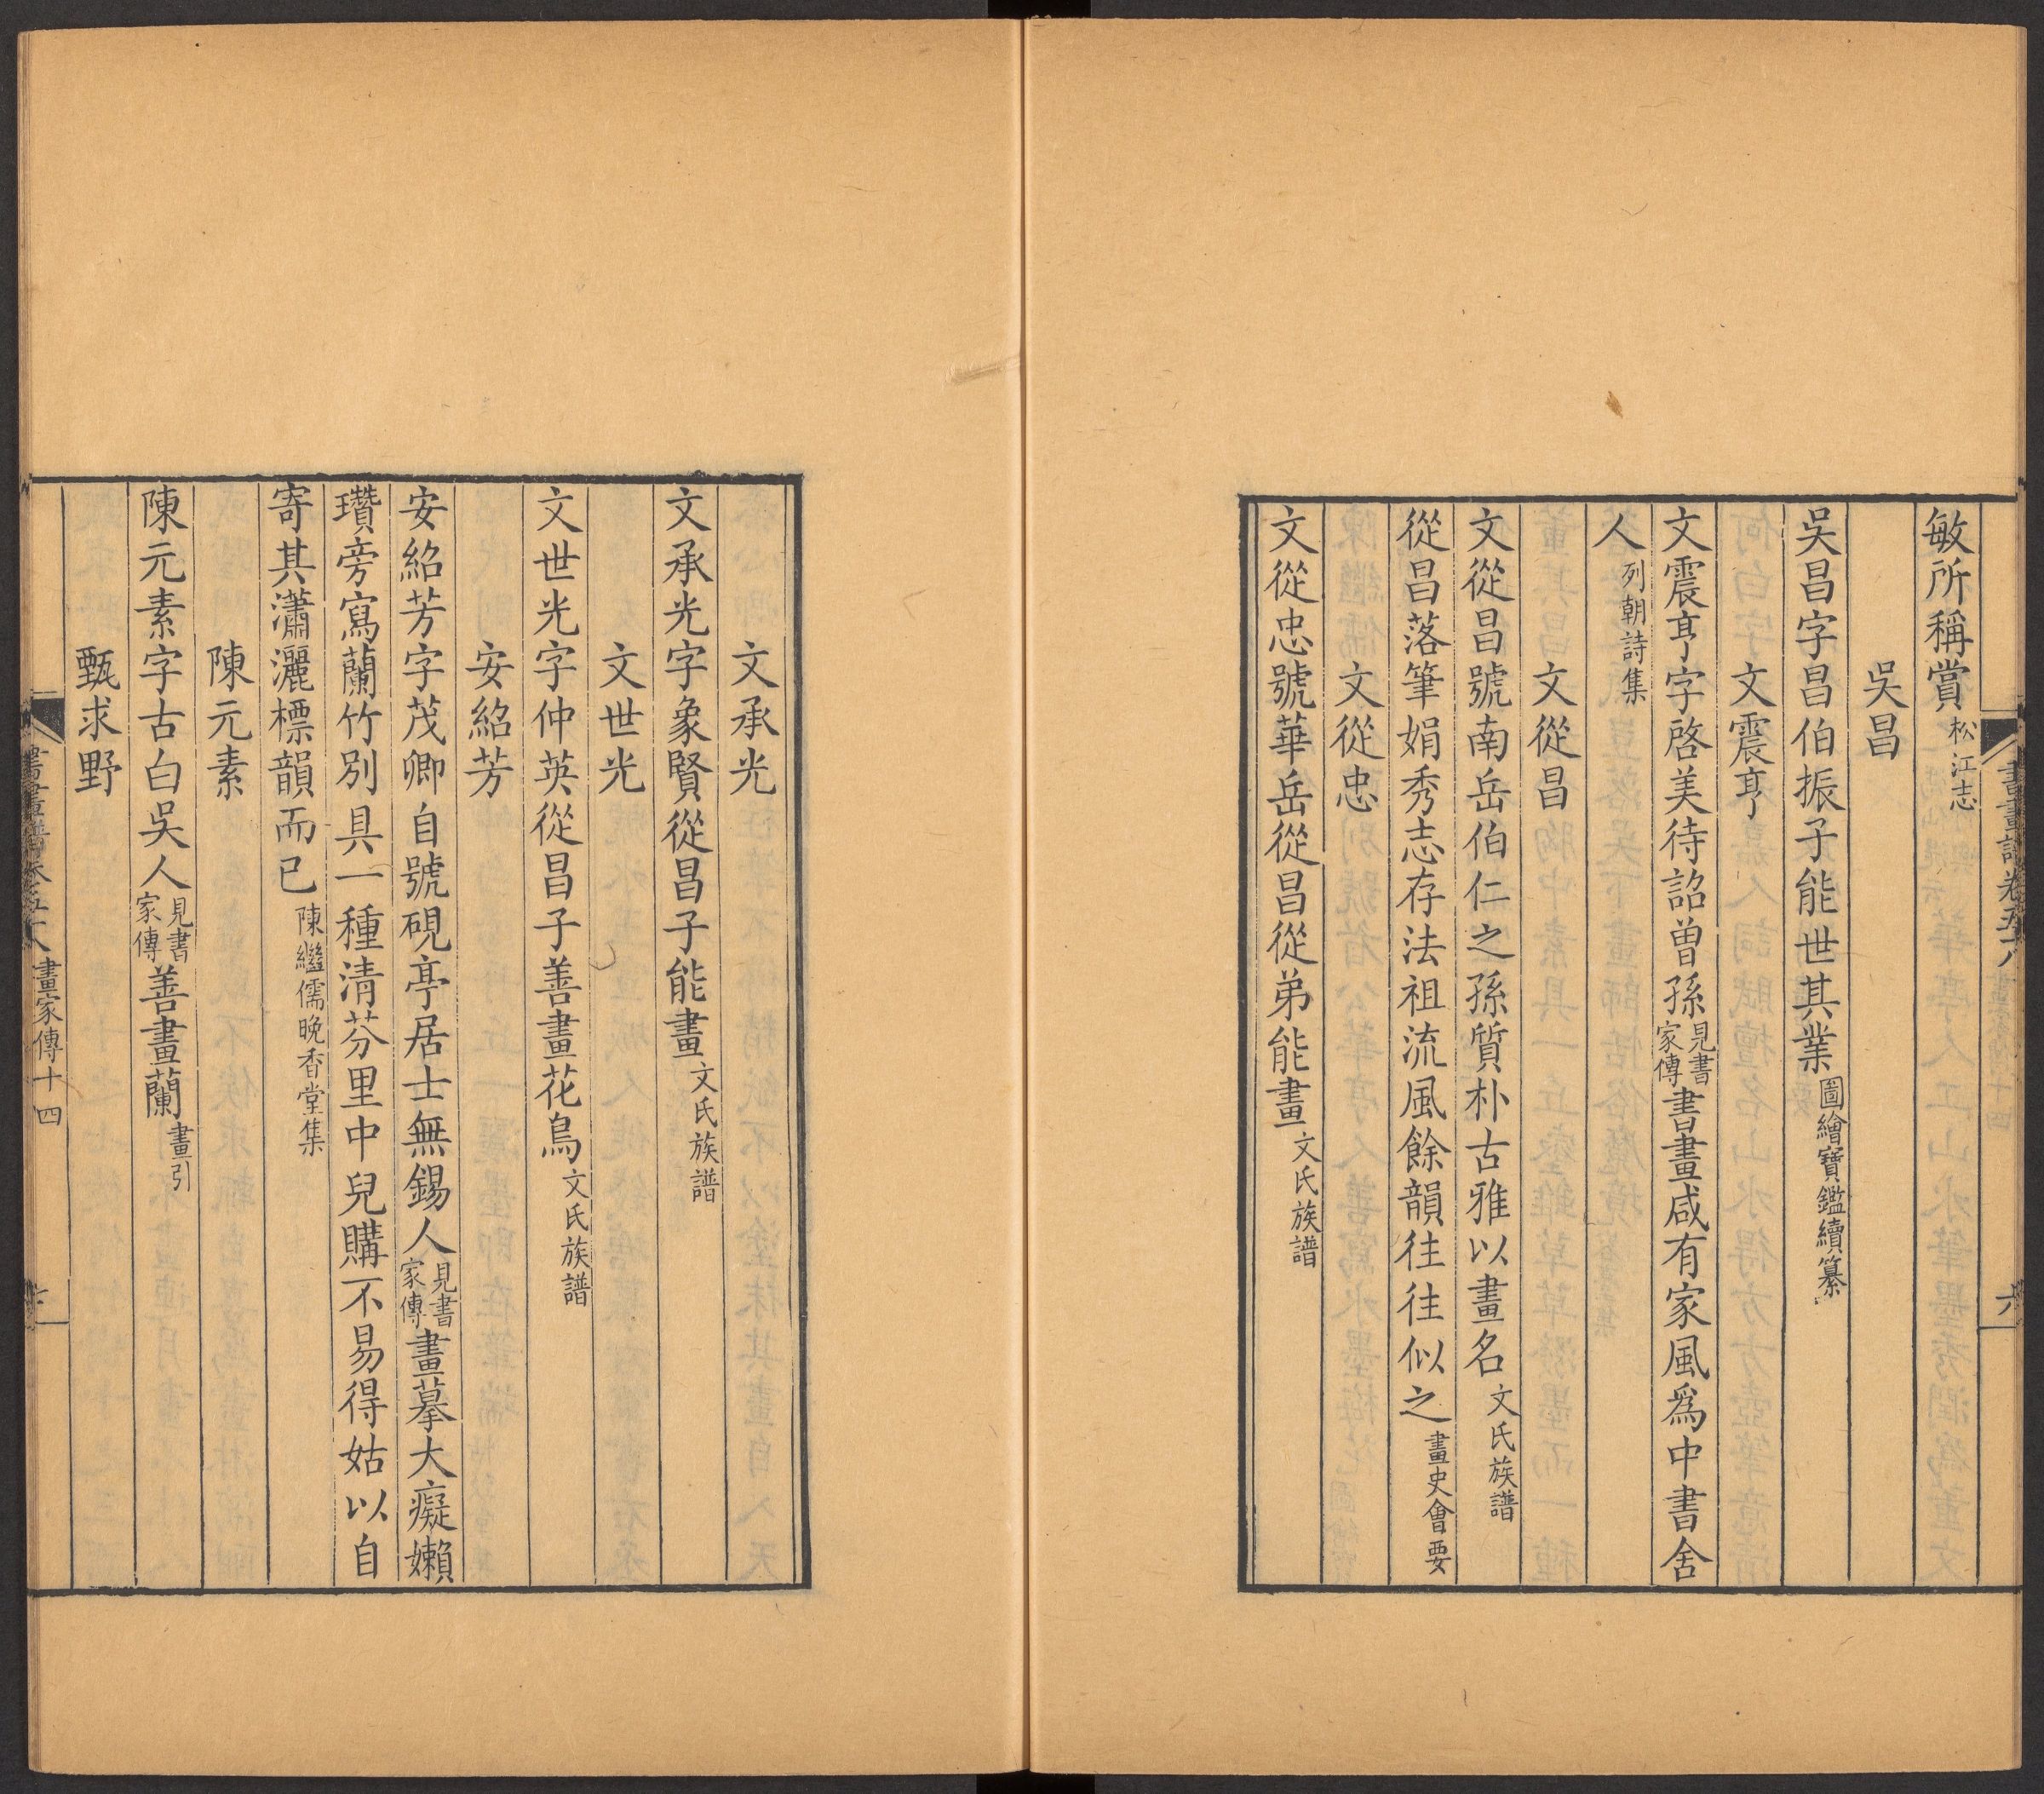 敏所稱賞松江志
吳昌
吳昌字昌伯振子能世其業圖繪寶鑑續纂
文震亨
文震亨字啓美待詔曾孫見書家傳書畫咸有家風爲中書舍
人列朝詩集
文從昌
文從昌號南岳伯仁之孫質朴古雅以畫名文氏族譜
從昌落筆娟秀志存法祖流風餘韻往往似之畫史會要
文從忠
文從忠號華岳從昌從弟能畫文氏族譜
文承光
文承光字象賢從昌子能畫文氏族譜
文世光
文世光字仲英從昌子善畫花鳥文氏族譜
安紹芳
安紹芳字茂卿自號硯亭居士無錫人見書家傳畫摹大癡嬾
瓚旁寫蘭竹別具一種清芬里中兒購不易得姑以自
寄其瀟灑標韻而已陳繼儒晚香堂集
陳元素
陳元素字古白吳人見書家傳善畫蘭畫引
甄求野
書畫譜卷五十八 畫家傳十四